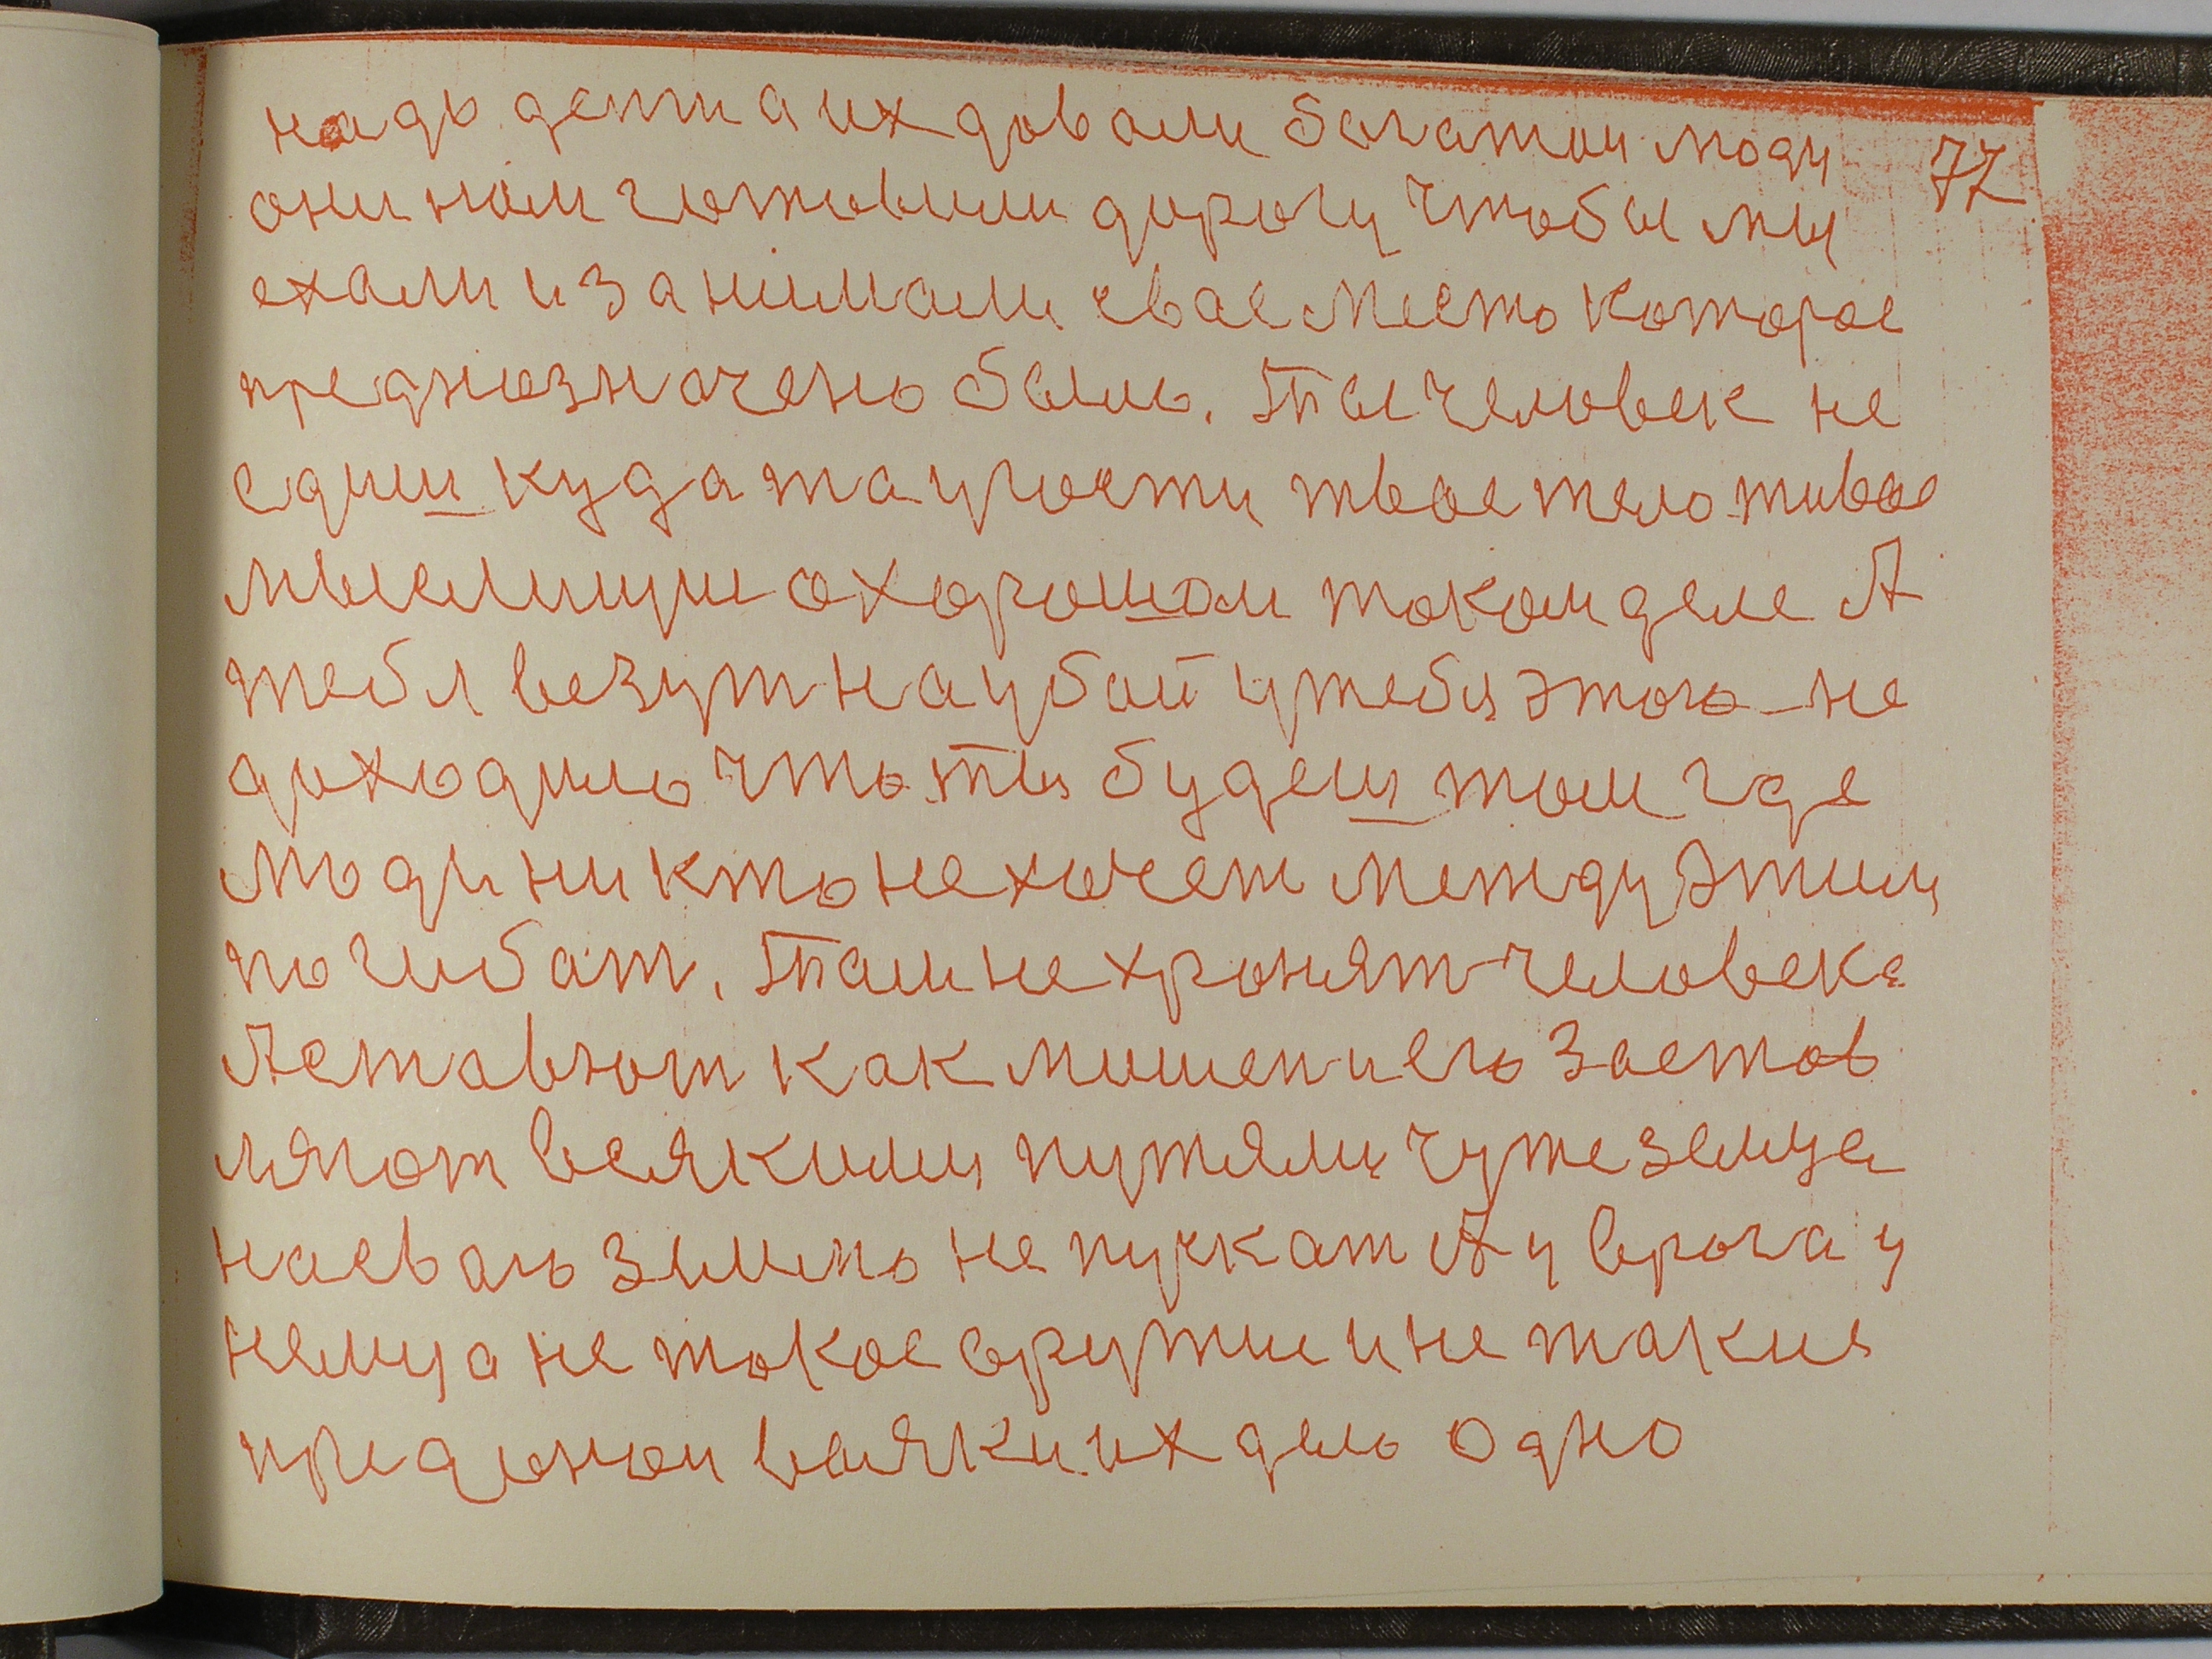 надо денги а их довали багатои люди 77
они нам готовили дорогу чтобы мы
ехали и занимали свае место которое
предназначено было. Ты человек не
едиш куда та угости твое тело живое
мыслищи о хорошом таком деле А
тебя везут на убой у тебя этого не
доходило что ты будеш там где
люди никто не хочет между этим
погибат. Там не хронят человека
А ставют как мишен и его застав
ляют всякими путями чужеземца
на сваю землю не пускат А у врага у
немца не такое оружие и не такие
придонои всяких дело одно